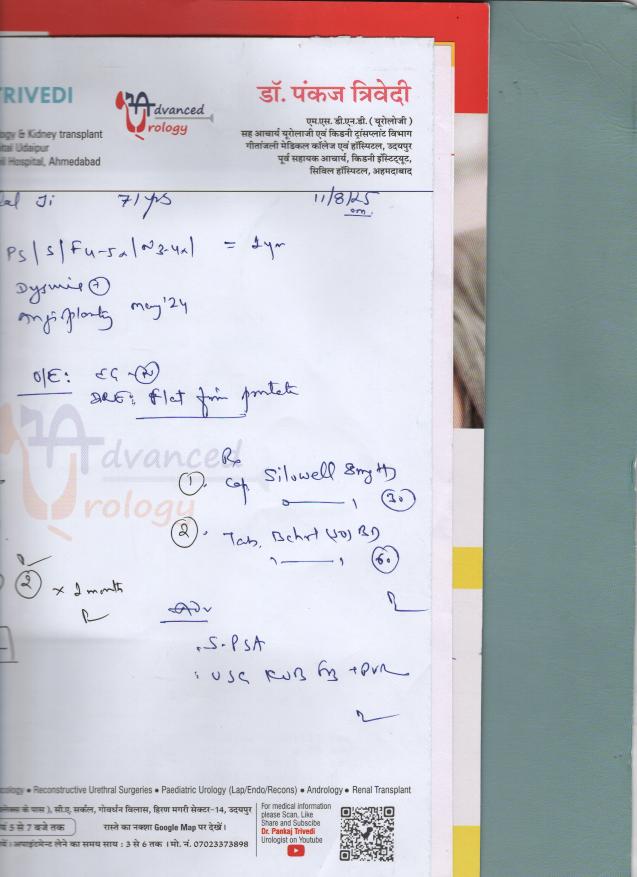 TRIVEDI
Advanced Urology
डॉ. पंकज त्रिवेदी
ogy & Kidney transplant
ital Udaipur
il Hospital, Ahmedabad
एम.एस. डी.एन.बी. ( यूरोलोजी )
सह आचार्य यूरोलाजी एवं किडनी ट्रांसप्लांट विभाग
गीतांजली मेडिकल कॉलेज एवं हॉस्पिटल, उदयपुर
पूर्व सहायक आचार्य, किडनी इंस्टिट्यूट,
सिविल हॉस्पिटल, अहमदाबाद
Ji 71yrs 11/8/25
= 1yr
Dysuria +
Angioplasty may'24
O/E: EG - N
DRE: Flat firm prostate
Advanced Urology
Rx
1. Cap. Silowell 8mg HS
0 — 1 30
2. Tab.
1 — 1 60
2 x 1 month
Adv
. S. PSA
: USG KUB + PVR
cology • Reconstructive Urethral Surgeries • Paediatric Urology (Lap/Endo/Recons) • Andrology • Renal Transplant
लेक्स के पास ), सी.ए. सर्कल, गोवर्धन विलास, हिरण मगरी सेक्टर-14, उदयपुर
5 से 7 बजे तक रास्ते का नक्शा Google Map पर देखें।
अपाइंटमेन्ट लेने का समय साय : 3 से 6 तक । मो. नं. 07023373898
For medical information
please Scan, Like
Share and Subscibe
Dr. Pankaj Trivedi
Urologist on Youtube